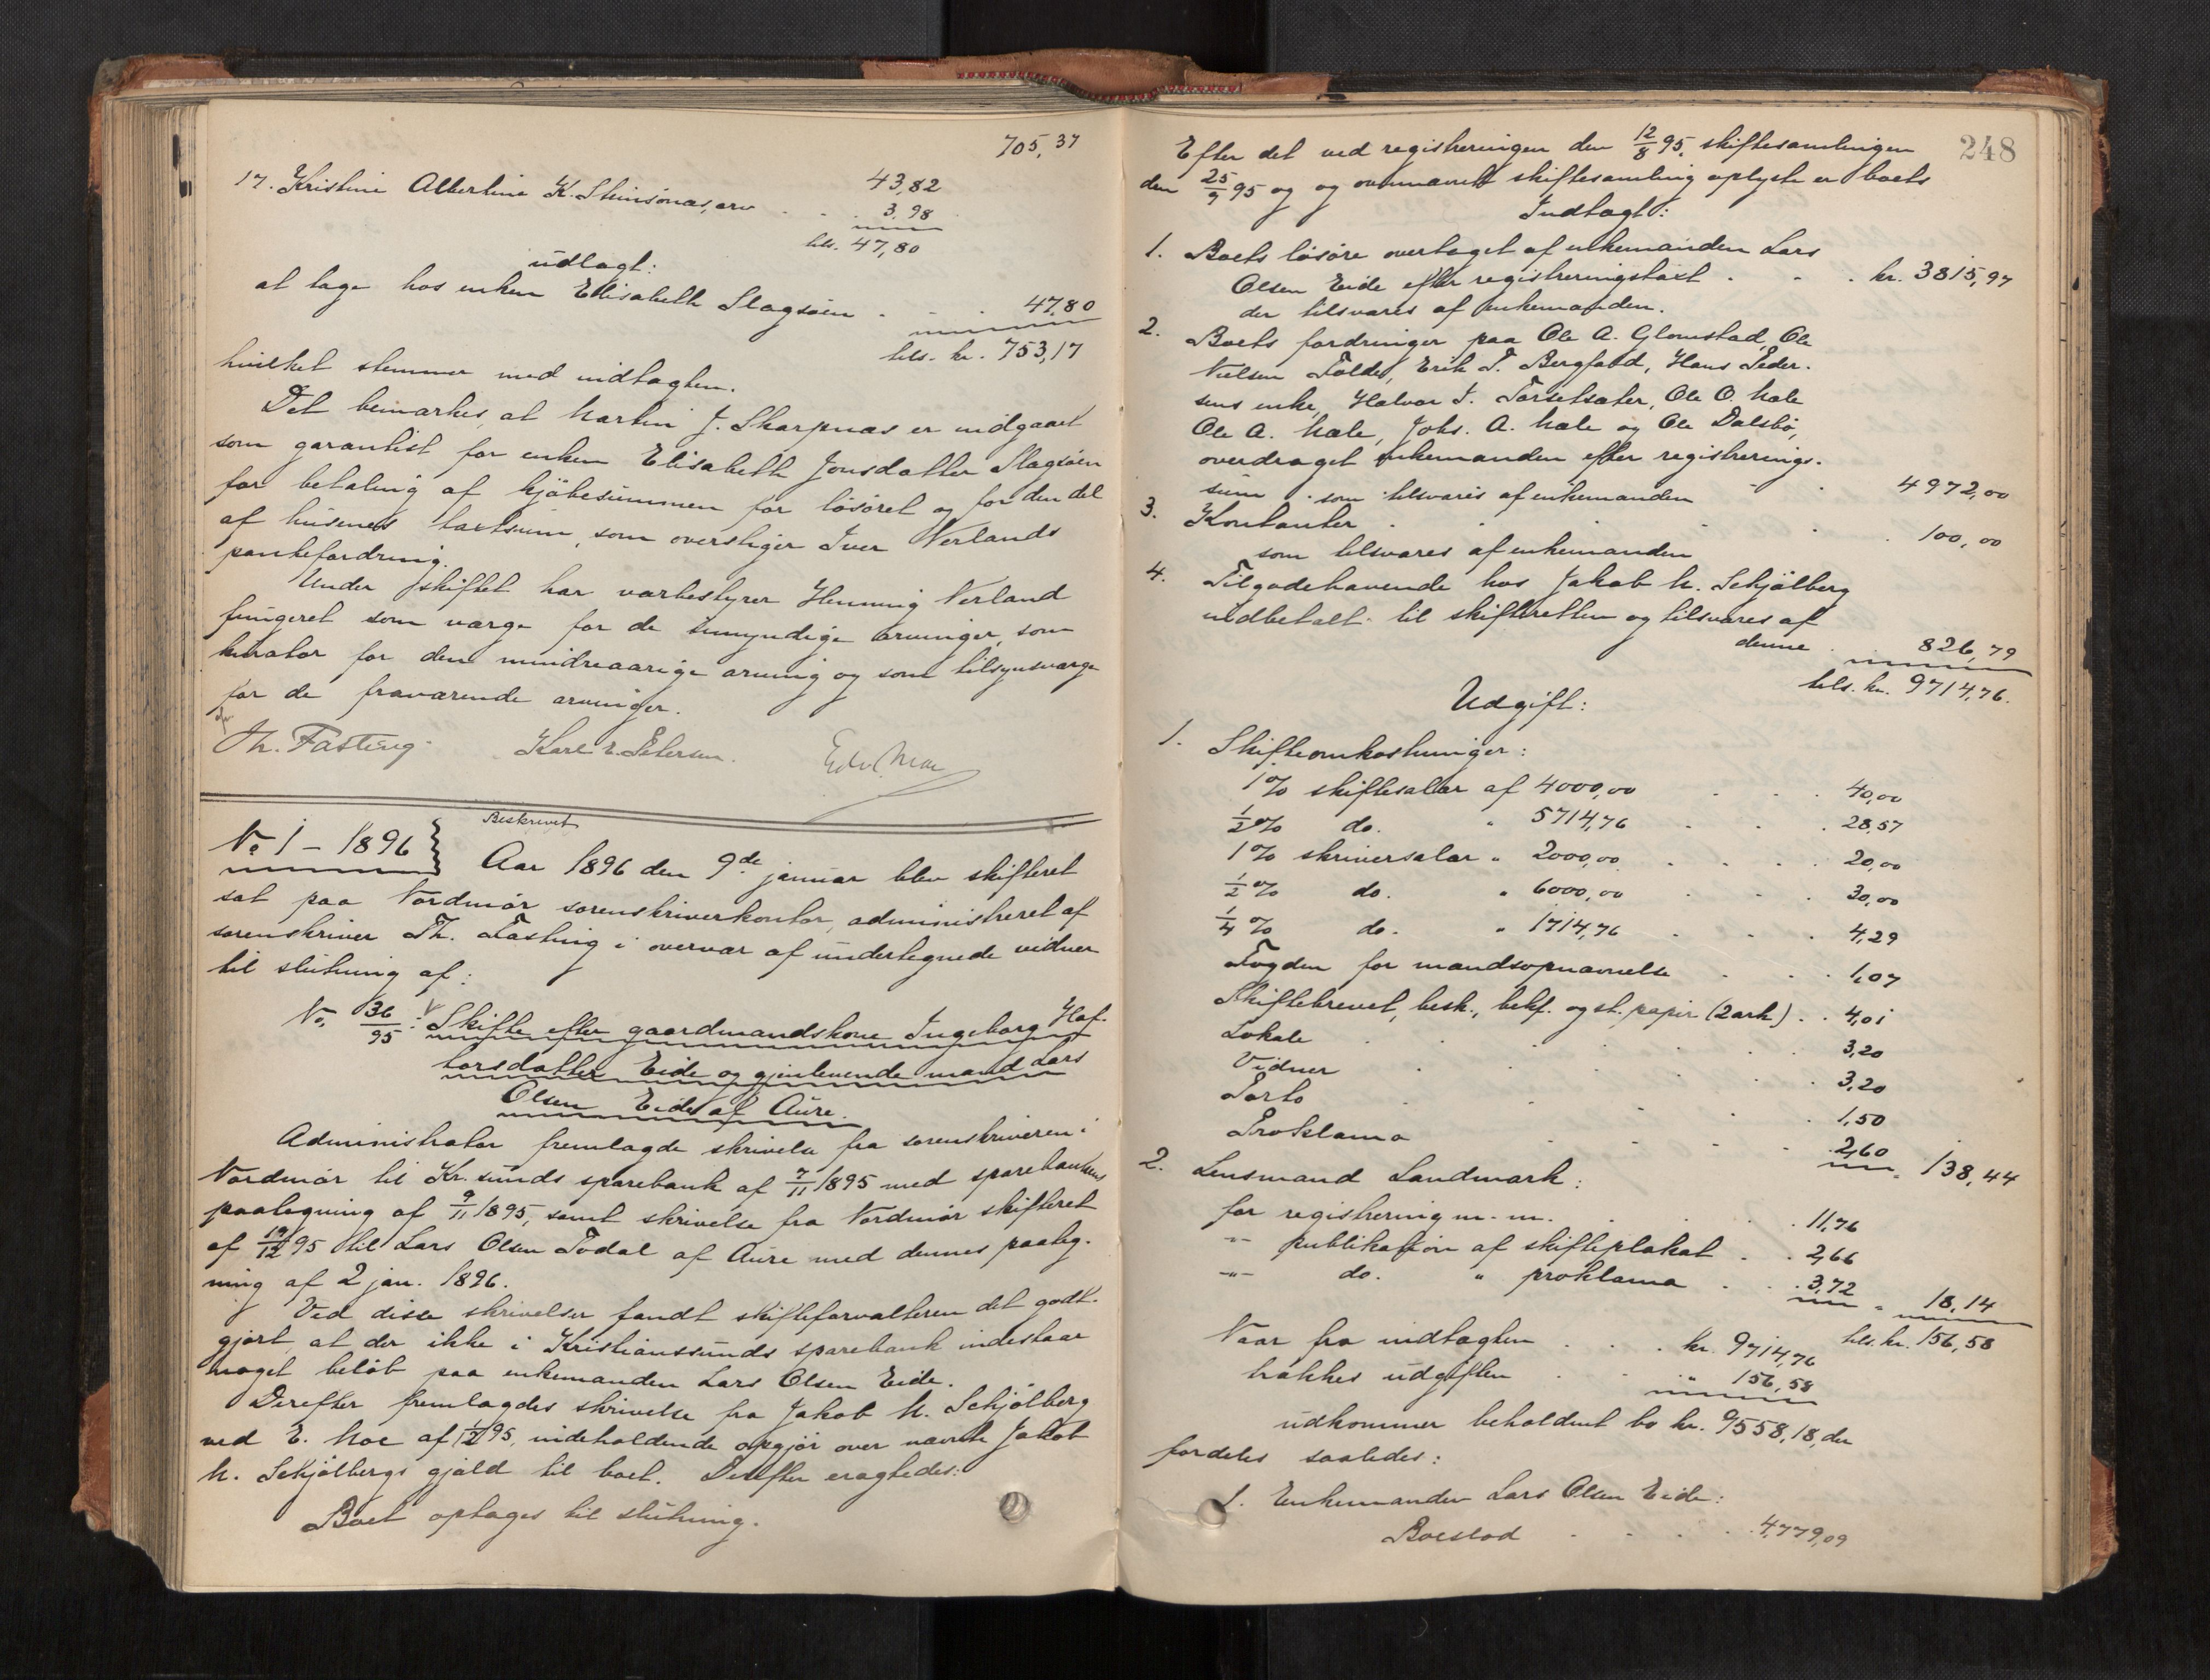 705,37
17. Kristine Albertine K. Steinsønæs, arv . . . 43,82
3,98
tils. 47,80
udlagt:
at tage hos enken Elisabeth Slagsøen . . . 47,80
tils. kr. 753,17
hvilket stemmer med indtægten.
Det bemærkes, at Martin J. Skarpnæs er indgaaet
som garantist for enken Elisabeth Jonsdatter Slagsøen
for betaling af kjøbesummen for løsøret og for den del
af husenes taxtsum, som overstiger Iver Nerlands
pantefordring.
Under skiftet har værbestyrer Henning Nerland
fungeret som værge for de umyndige arvinger, som
kurator for den mindreaarige arving og som tilsynsværge
for de fraværende arvinger.
Th. Fasting. Karl E. Petersen. Edv. Moe
Beskrevet
No 1 – 1896 } Aar 1896 den 9de januar blev skifteret
sat paa Nordmør sorenskriverkontor, administreret af
sorenskriver Th. Fasting i overvær af undertegnede vidner
til slutning af:
No. 36/95: Skifte efter gaardmandskone Ingeborg Haf-
torsdatter Eide og gjenlevende mand Lars
Olsen Eide af Aure.
Administrator fremlagde skrivelse fra sorenskriveren i
Nordmør til Kr.sunds sparebank af 7/11 1895 med sparebankens
paategning af 9/11 1895, samt skrivelse fra Nordmør skifteret
af 19/12 95 til Lars Olsen Todal af Aure med dennes paateg-
ning af 2 jan. 1896.
Ved disse skrivelser fandt skifteforvalteren det godt-
gjort, at der ikke i Kristianssunds sparebank indestaar
noget beløb paa enkemanden Lars Olsen Eide.
Derefter fremlagdes skrivelse fra Jakob M. Schjølberg
ved E. Moe af 1/12 95, indeholdende opgjør over nævnte Jakob
M. Schjølbergs gjæld til boet. Derefter eragtedes:
Boet optages til slutning.
248
Efter det ved registreringen den 12/8 95, skiftesamlingen
den 25/9 95 og og ovennævnt skiftesamling oplyste er boets
Indtægt:
1. Boets løsøre overtaget af enkemanden Lars
Olsen Eide efter registreringstaxt . . . kr. 3815,97
der tilsvares af enkemanden.
2. Boets fordringer paa Ole A. Glomstad, Ole
Nielsen Todal, Erik T. Bergfald, Hans Peder-
sens enke, Halvor I. Torsetsæter, Ole O. Mæle
Ole A. Mæle, Johs. A. Mæle og Ole Dalsbø,
overdraget enkemanden efter registrerings-
sum som tilsvares af enkemanden . . 4972,00
3. Kontanter . . . . . 100,00
som tilsvares af enkemanden
4. Tilgodehavende hos Jakob M. Schjølberg
indbetalt til skifteretten og tilsvares af
denne . 826,79
tils. kr. 9714,76.
Udgift:
1. Skifteomkostninger:
1% skiftesalær af 4000,00 . . . 40,00
1/2% do. " 5714,76 . . . 28,57
1% skriversalær " 2000,00 . . . 20,00
1/2% do. " 6000,00 . . . 30,00
1/4% do. " 1714,76 . . . 4,29
Fogden for mandsopnævnelse . . . 1,07
Skiftebrevet, besk., bekf. og st. papir (2 ark) . . 4,01
Lokale . . . . . 3,20
Vidner . . . . . 3,20
Porto . . . . . 1,50
Proklama . . . . 2,60 " 138,44
2. Lensmand Landmark:
for registrering m. m. . . . 11,76
-"- publikation af skifteplakat . . 2,66
-"- do. " proklama . . . 3,72 " 18,14
tils. kr. 156,58
Naar fra indtægten . . . kr. 9714,76
trækkes udgiften . . " 156,58
udkommer beholdent bo kr. 9558,18, der
fordeles saaledes:
1. Enkemanden Lars Olsen Eide:
Boeslod . . . . 4779,09